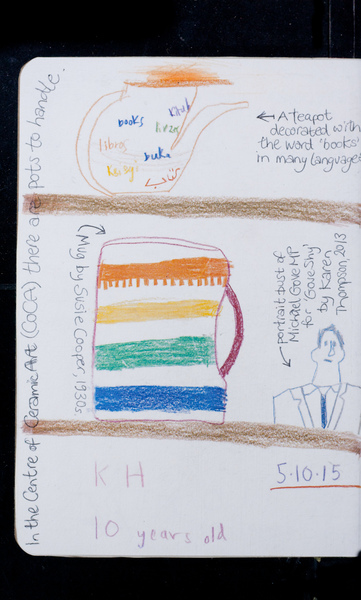 In the Centre of Ceramic Art (CoCA) there are pots to handle.
books
libros
buke
كتب
← A teapot
decorated with
the word 'books'
in many languages
Mug by Susie Cooper, 1930s.
portrait bust of
Michael Gove MP
for 'Goveshy'
by Karen
Thompson, 2013
K H
10 years old
5.10.15